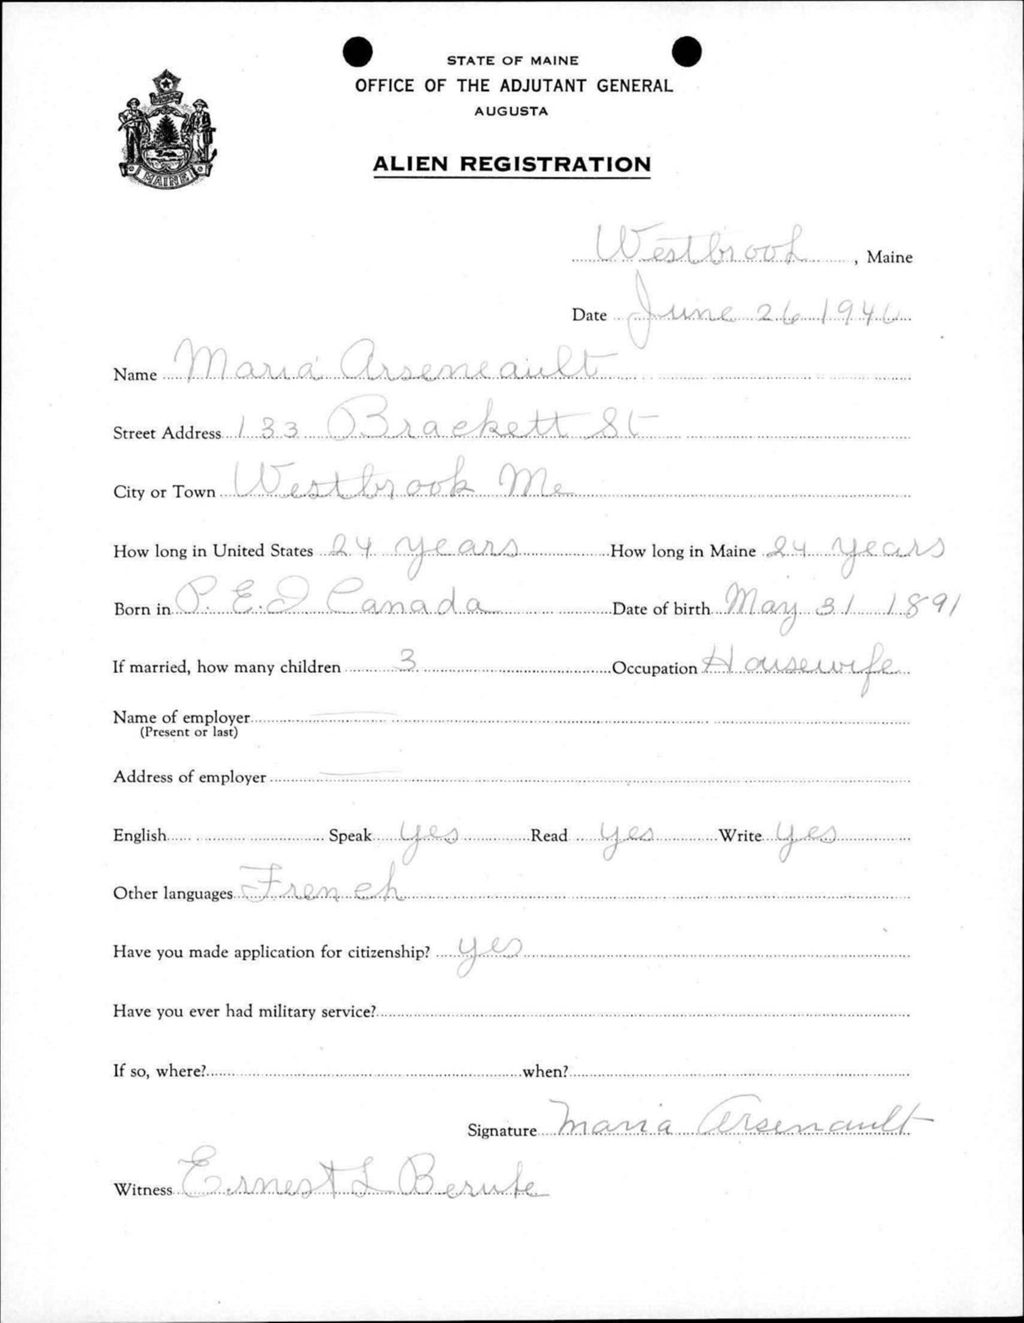 STATE OF MAINE
OFFICE OF THE ADJUTANT GENERAL
AUGUSTA
MAINE
ALIEN REGISTRATION
Westbrook, Maine
Date June 26 1940
Name Maria Arseneault
Street Address 133 Brackett St
City or Town Westbrook Me
How long in United States 24 years How long in Maine 24 years
Born in P.E.I Canada Date of birth May 31 1891
If married, how many children 3 Occupation Housewife
Name of employer
(Present or last)
Address of employer
English Speak yes Read yes Write yes
Other languages French
Have you made application for citizenship? yes
Have you ever had military service?
If so, where? when?
Signature Maria Arsenault
Witness Ernest L